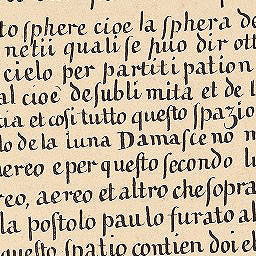 to sphere cioe la sphera de
netii quali se puo dir ott
cielo per partiti pation
al cioe de subli mita et de l
cia et cosi tutto questo spazio
lo de la luna Damasce no m
aereo e per questo secondo lu
reo, aereo et altro che sopra
la postolo paulo furato al
questo spatio contien doi el